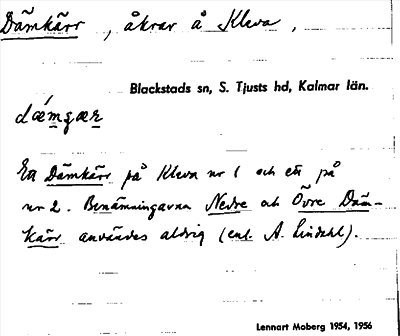 Dämkärr, åkrar å Kleva,
Blackstads sn, S. Tjusts hd, Kalmar län.
dæ´mçær
Ett Dämkärr på Kleva nr 1 och ett på
nr 2. Benämningarna Nedre och Övre Däm-
kärr användes aldrig (enl. A. Lindahl).
Lennart Moberg 1954, 1956